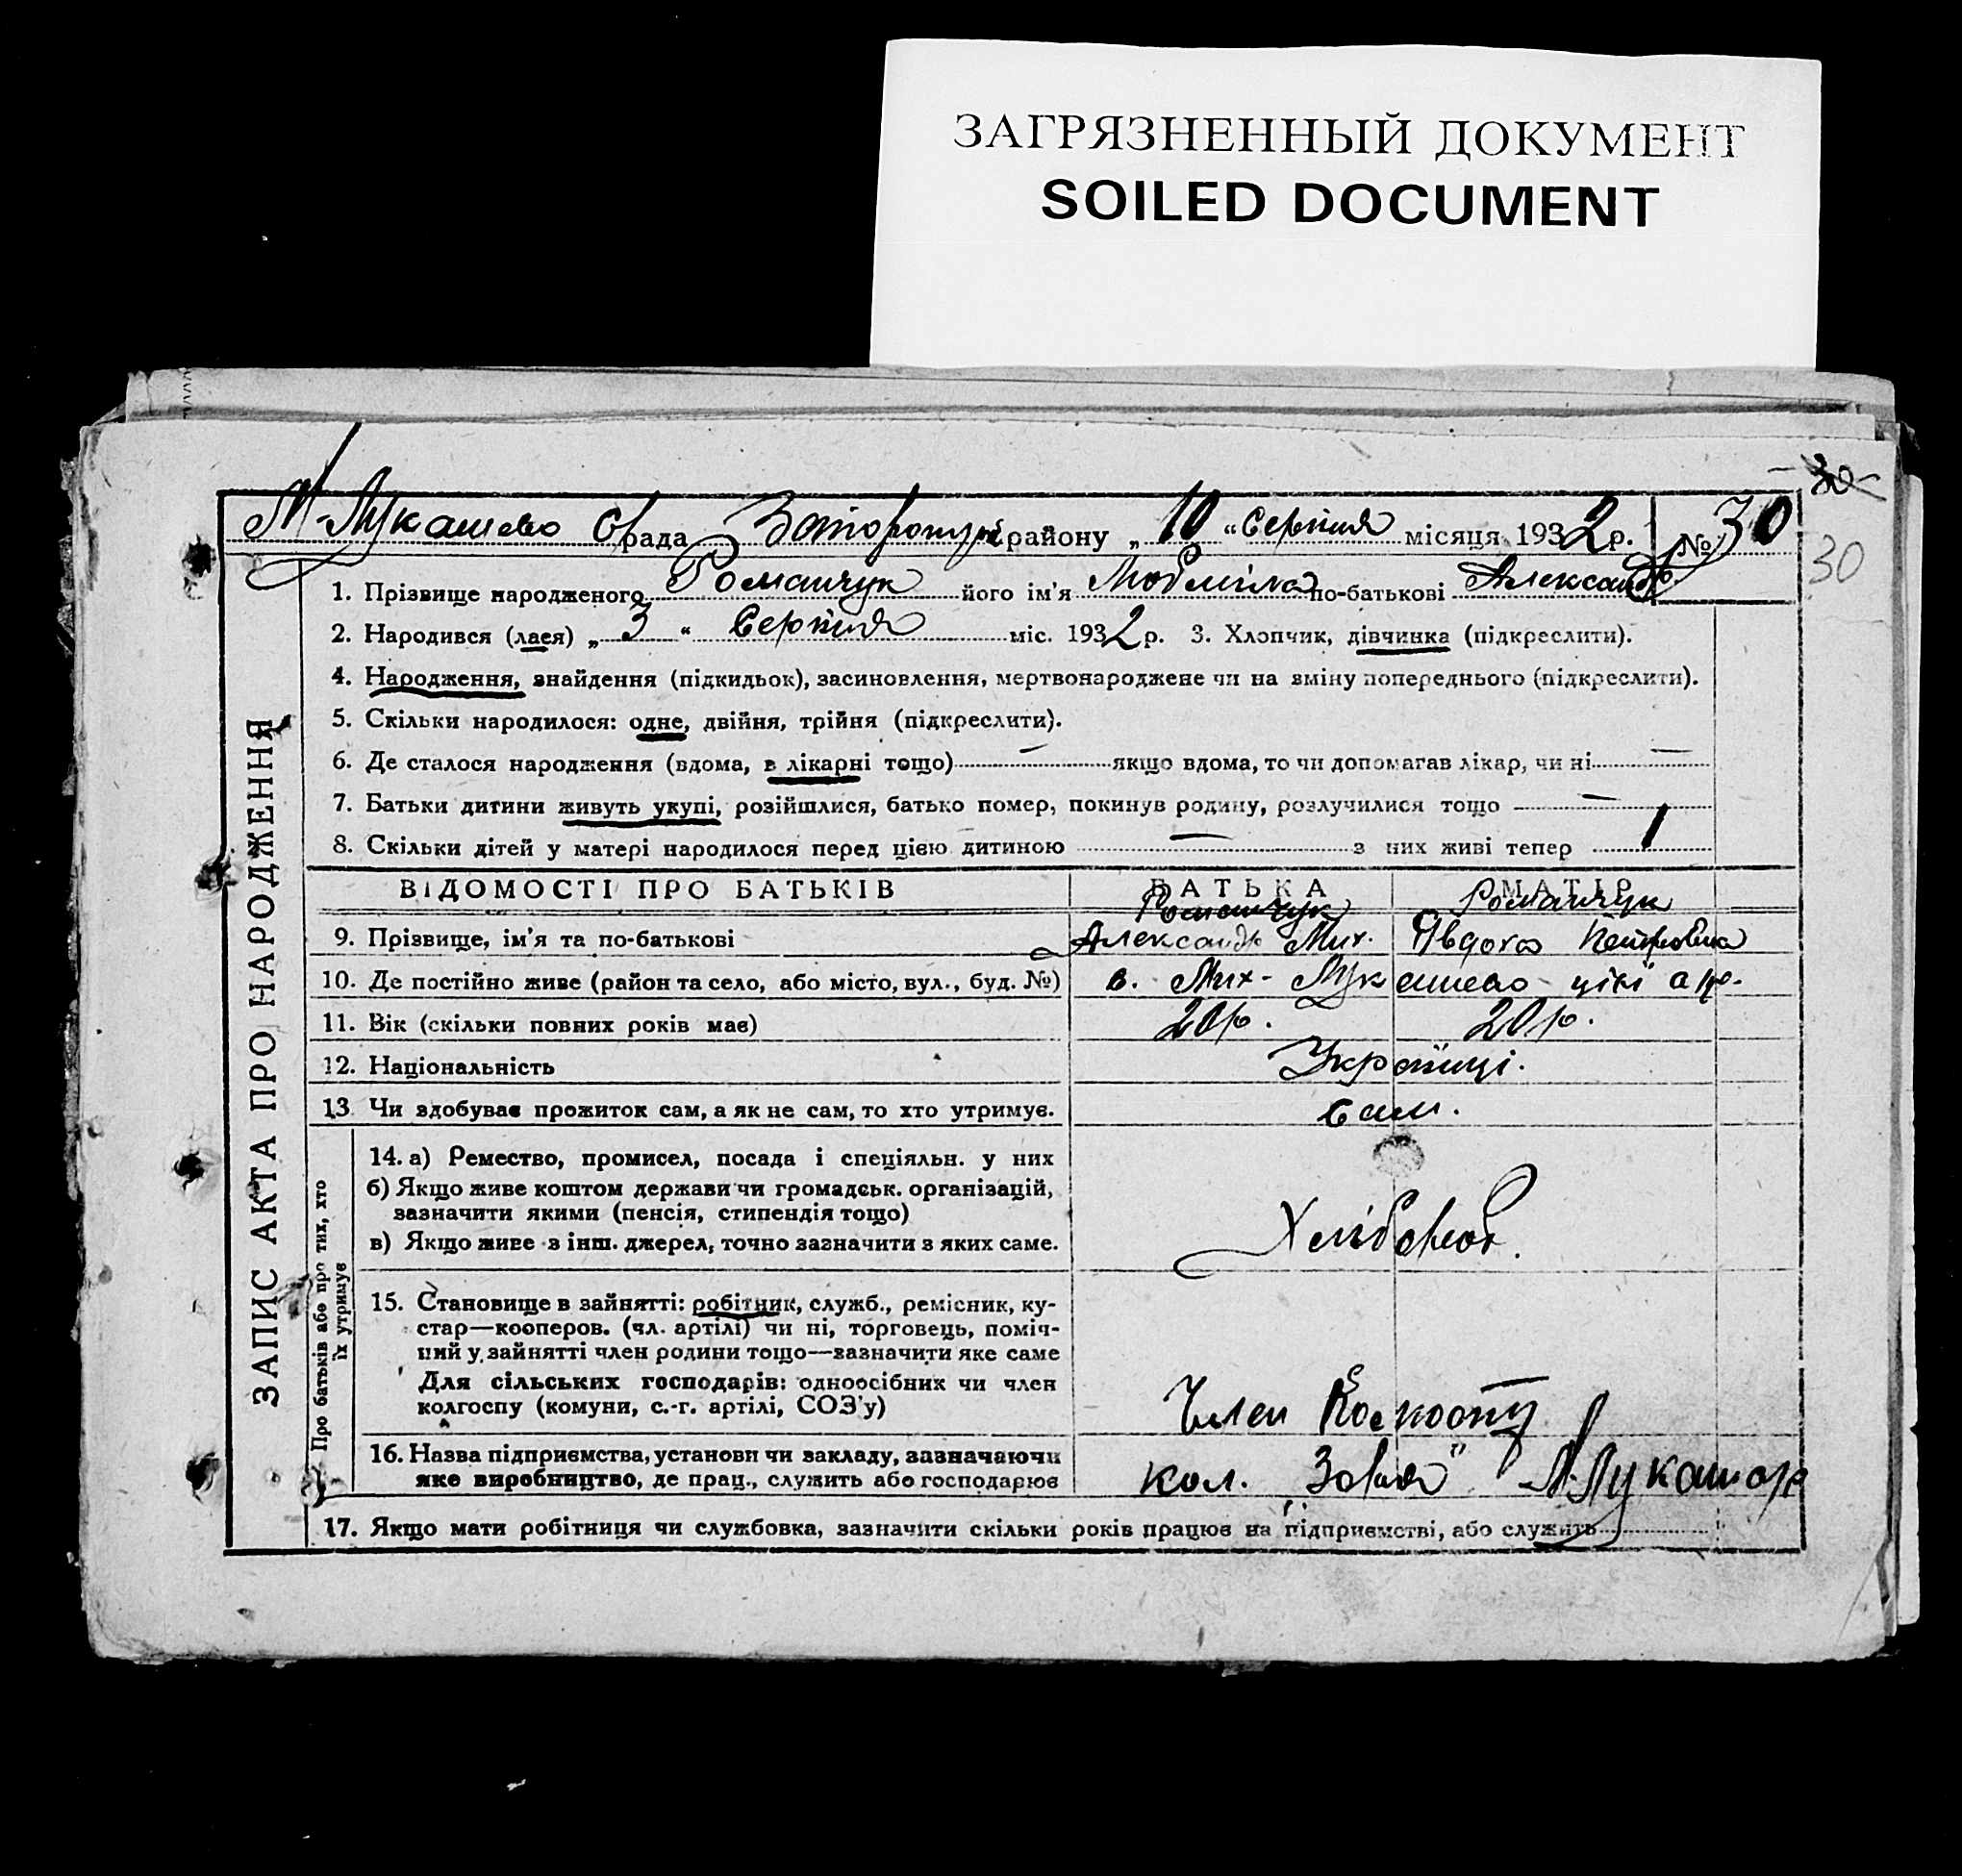 ЗАГРЯЗНЕННЫЙ ДОКУМЕНТ
SOILED DOCUMENT
30
М-Лукашево С/рада району „ 10 “ Серпня місяця 1932 р. № 30
30
1. Прізвище народженого Романчук його ім'я Людміла по-батькові Александр
2. Народився (лася) „ 3 “ Серпня міс. 1932 р. 3. Хлопчик, дівчинка (підкреслити).
4. Народження, знайдення (підкидьок), засиновлення, мертвонароджене чи на зміну попереднього (підкреслити).
5. Скільки народилося: одне, двійня, трійня (підкреслити).
6. Де сталося народження (вдома, в лікарні тощо) — якщо вдома, то чи допомагав лікар, чи ні —
7. Батьки дитини живуть укупі, розійшлися, батько помер, покинув родину, розлучилися тощо —
8. Скільки дітей у матері народилося перед цією дитиною — з них живі тепер 1
ВІДОМОСТІ ПРО БАТЬКІВ БАТЬКА МАТІР
Романчук Романчук
9. Прізвище, ім'я та по-батькові Александр Мих. Явдоха Петровна
10. Де постійно живе (район та село, або місто, вул., буд. №) с. Мих-Лукашево
11. Вік (скільки повних років має) 20 р. 20 р.
12. Національність Українці.
13 Чи здобуває прожиток сам, а як не сам, то хто утримує. Сам.
Про батьків або про тих, хто
їх утримує
14. а) Ремество, промисел, посада і спеціяльн. у них
б) Якщо живе коштом держави чи громадськ. організацій,
зазначити якими (пенсія, стипендія тощо)
в) Якщо живе з інш. джерел, точно зазначити з яких саме.
Хлібороб.
15. Становище в зайнятті: робітник, служб., ремісник, ку-
стар—кооперов. (чл. артілі) чи ні, торговець, поміч-
ний у зайнятті член родини тощо—зазначити яке саме
Для сільських господарів: одноосібник чи член
колгоспу (комуни, с.-г. артілі, СОЗ'у)
Член
16. Назва підприємства, установи чи закладу, зазначаючи
яке виробництво, де прац., служить або господарює
кол. „Зоря"
17. Якщо мати робітниця чи службовка, зазначити скільки років працює на підприємстві, або служить
ЗАПИС АКТА ПРО НАРОДЖЕННЯ